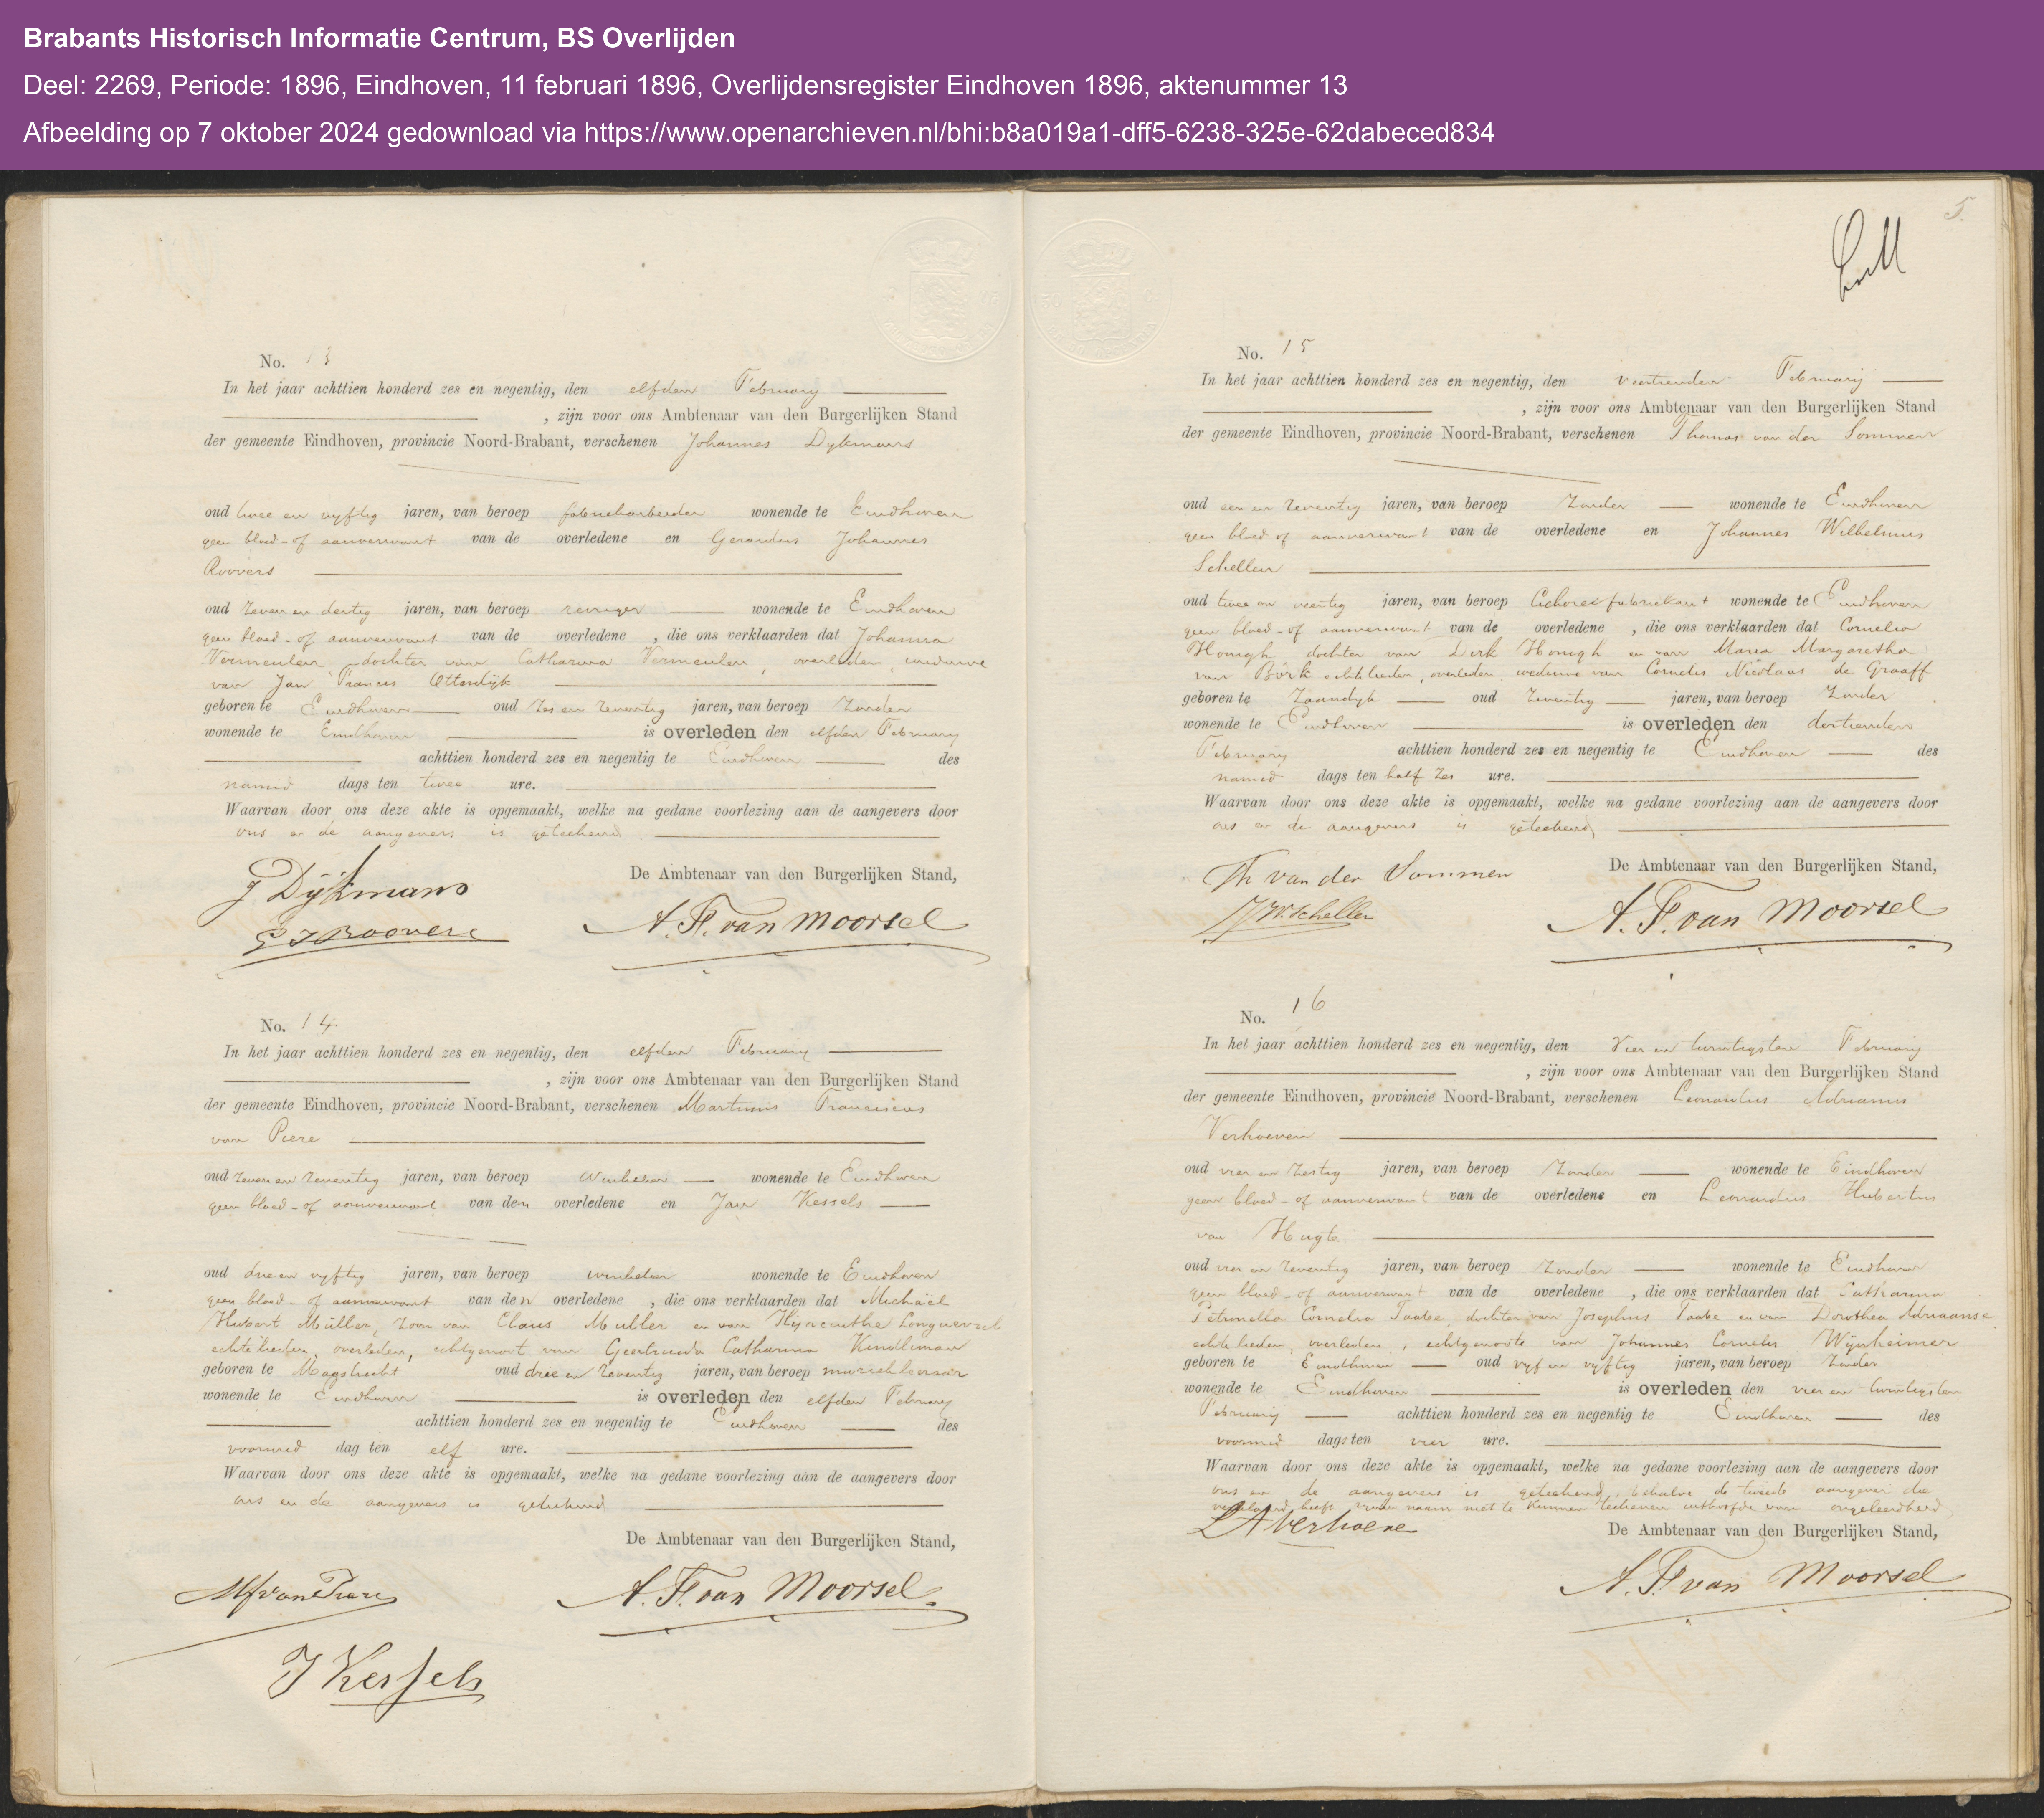 Brabants Historisch Informatie Centrum, BS Overlijden
Deel: 2269, Periode: 1896, Eindhoven, 11 februari 1896, Overlijdensregister Eindhoven 1896, aktenummer 13
Afbeelding op 7 oktober 2024 gedownload via https://www.openarchieven.nl/bhi:b8a019a1-dff5-6238-325e-62dabeced834
No. 13
In het jaar achttien honderd zes en negentig, den elfden February
, zijn voor ons Ambtenaar van den Burgerlijken Stand
der gemeente Eindhoven, provincie Noord-Brabant, verschenen Johannes Dykmans
oud twee en vyftig jaren, van beroep fabriekarbeider wonende te Eindhoven
geen bloed- of aanverwant van de overledene en Gerardus Johannes
Roovers
oud zeven en dertig jaren, van beroep wonende te Eindhoven
geen bloed- of aanverwant van de overledene, die ons verklaarden dat Johanna
Vermeulen dochter van Catharina Vermeulen, overleden, weduwe
van Jan Francis Ottendijk
geboren te Eindhoven oud zes en zeventig jaren, van beroep Zonder
wonende te Eindhoven is overleden den elfden February
achttien honderd zes en negentig te Eindhoven des
namid dags ten twee ure.
Waarvan door ons deze akte is opgemaakt, welke na gedane voorlezing aan de aangevers door
ons en de aangevers is geteekend
De Ambtenaar van den Burgerlijken Stand,
J Dijkmans
G J Roovers
A. F. van Moorsel
No. 14
In het jaar achttien honderd zes en negentig, den elfden February
, zijn voor ons Ambtenaar van den Burgerlijken Stand
der gemeente Eindhoven, provincie Noord-Brabant, verschenen Martinus Franciscus
van Piere
oud zeven en zeventig jaren, van beroep winkelier wonende te Eindhoven
geen bloed- of aanverwant van den overledene en Jan Kessels
oud drie en vyftig jaren, van beroep winkelier wonende te Eindhoven
geen bloed- of aanverwant van den overledene, die ons verklaarden dat Michaël
Hubert Müller, zoon van Claus Muller en van Hyacinthe Longueville
echtelieden, overleden, echtgenoot van Geertruida Catharina
geboren te Maastricht oud drie en zeventig jaren, van beroep muziekleeraar
wonende te Eindhoven is overleden den elfden February
achttien honderd zes en negentig te Eindhoven des
voormid dag ten elf ure.
Waarvan door ons deze akte is opgemaakt, welke na gedane voorlezing aan de aangevers door
ons en de aangevers is geteekend
De Ambtenaar van den Burgerlijken Stand,
M f van Piere
A. F. van Moorsel
J Kessels
5.
No. 15
In het jaar achttien honderd zes en negentig, den veertienden February
, zijn voor ons Ambtenaar van den Burgerlijken Stand
der gemeente Eindhoven, provincie Noord-Brabant, verschenen Thomas van der Sommen
oud een en zeventig jaren, van beroep Zonder wonende te Eindhoven
geen bloed- of aanverwant van de overledene en Johannes Wilhelmus
Schellen
oud twee en veertig jaren, van beroep Cichoreifabriekant wonende te Eindhoven
geen bloed- of aanverwant van de overledene, die ons verklaarden dat Cornelia
Honigh dochter van Dirk Honigh en van Maria Margaretha
van Börk echtelieden, overleden, weduwe van Cornelis Nicolaas de Graaff
geboren te Zaandyk oud zeventig jaren, van beroep Zonder
wonende te Eindhoven is overleden den dertienden
February achttien honderd zes en negentig te Eindhoven des
namid dags ten half zes ure.
Waarvan door ons deze akte is opgemaakt, welke na gedane voorlezing aan de aangevers door
ons en de aangevers is geteekend
De Ambtenaar van den Burgerlijken Stand,
Th van der Sommen
J W Schellen
A. F. van Moorsel
No. 16
In het jaar achttien honderd zes en negentig, den Vier en twintigsten February
, zijn voor ons Ambtenaar van den Burgerlijken Stand
der gemeente Eindhoven, provincie Noord-Brabant, verschenen Leonardus Adrianus
Verhoeven
oud vier en zestig jaren, van beroep Zonder wonende te Eindhoven
geen bloed- of aanverwant van de overledene en Leonardus Hubertus
van Hugte
oud vier en zeventig jaren, van beroep Zonder wonende te Eindhoven
geen bloed- of aanverwant van de overledene, die ons verklaarden dat Catharina
Petronella Cornelia Taabe, dochter van Josephus Taabe en van Dorothea Adriaanse
echtelieden, overleden, echtgenoote van Johannes Cornelis Wijnheimer
geboren te Eindhoven oud vyf en vyftig jaren, van beroep Zonder
wonende te Eindhoven is overleden den vier en twintigsten
February achttien honderd zes en negentig te Eindhoven des
voormid dags ten vier ure.
Waarvan door ons deze akte is opgemaakt, welke na gedane voorlezing aan de aangevers door
ons en de aangevers is geteekend, behalve de tweede aangever die
verklaard heeft zynen naam niet te kunnen teekenen uithoofde van ongeleerdheid
De Ambtenaar van den Burgerlijken Stand,
L A Verhoeven
A. F. van Moorsel